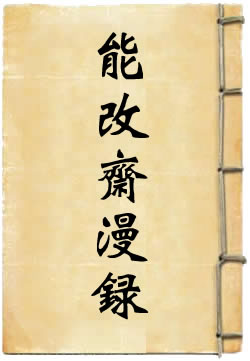 能改齋漫録